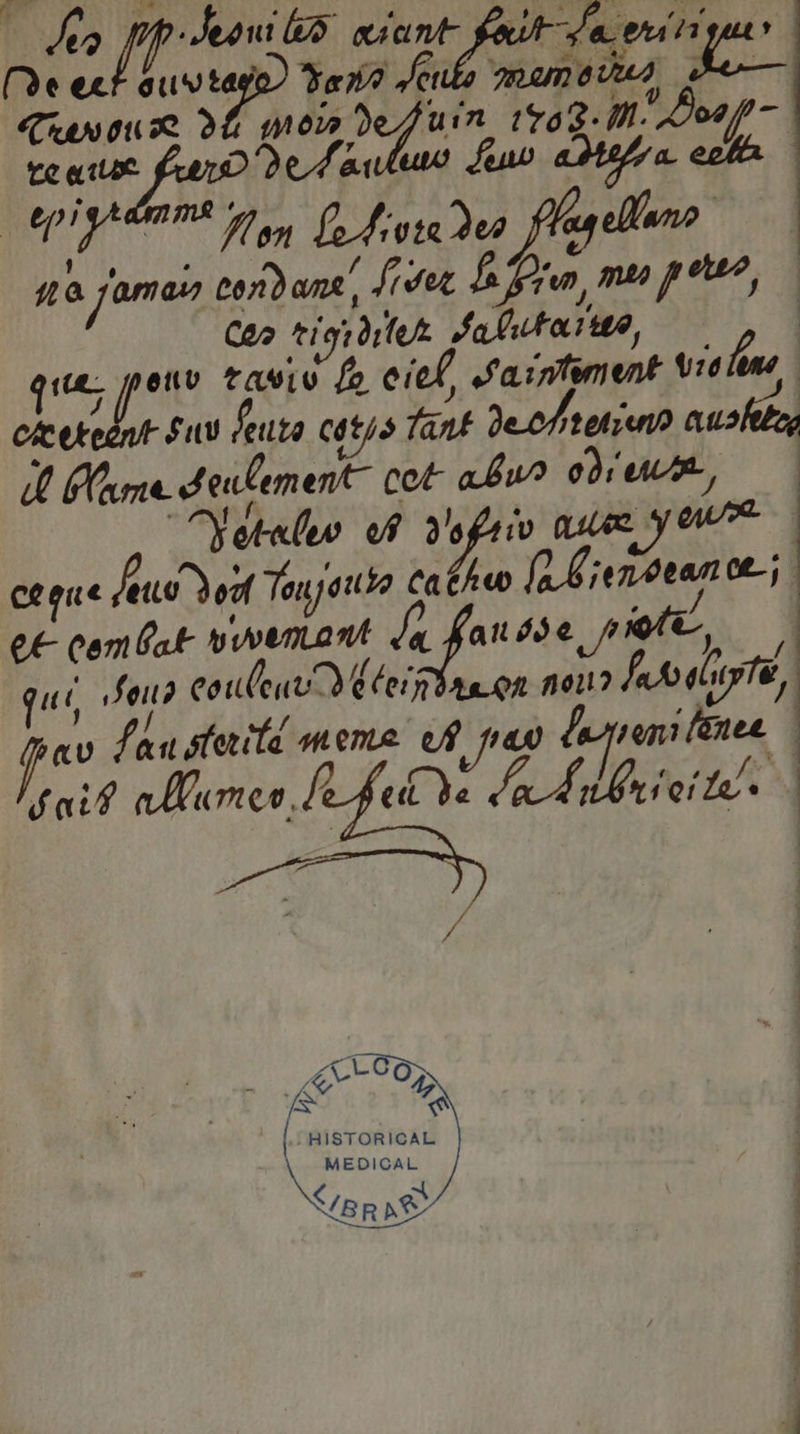 Les pp. Jesuites aiant fait la critique
De cet ouvrage Dans leurs memoires de
Trevoux Du mois de Juin 1703. M. Desp-
reaux frere De l'auteur leur adressa cette
epigramme Non le livre des flagellans
n'a jamais condanné, lisez le bien, mes peres,
Ces rigiditez salutaires,
que, pour ravir le ciel, saintement violens,
exercent sur leurs corps tant de chretiens austeres
il blame seulement cet abus odieux,
D'etaler et d'offrir aux yeux
ce que leur doit toujours cacher la bienseance;
et combat vivement la fausse pieté,
qui, sous couleur d'éteindre en nous la volupté,
par l'austerité meme et par la penitence
sait allumer le feu de la lubricité.
WELLCOME
HISTORICAL
MEDICAL
LIBRARY